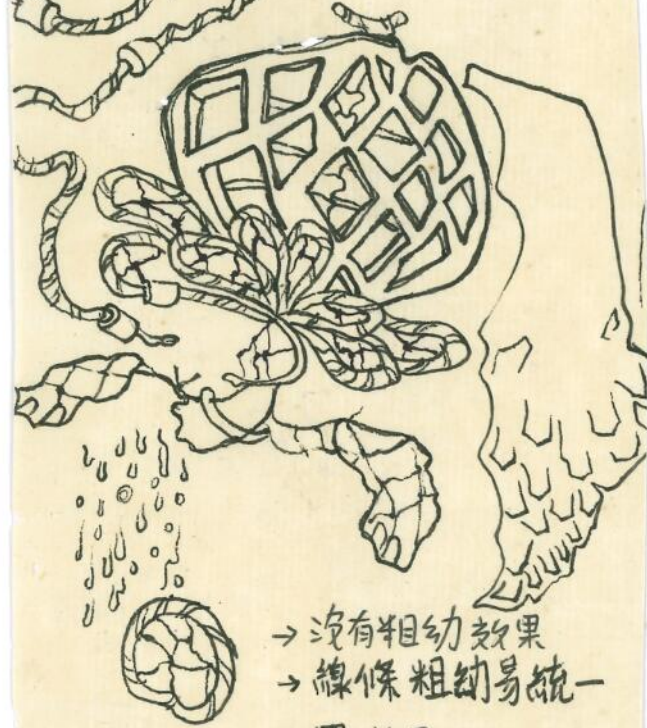 → 沒有粗幼效果
→ 線條粗幼易統一